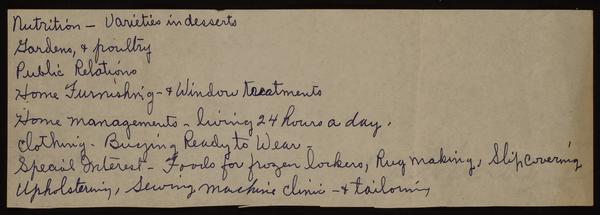 Nutrition - Varieties in desserts
Gardens, & poultry
Public Relations
Home Furnishing - & Window treatments
Home managements - living 24 hours a day.
Clothing - Buying Ready to Wear -
Special Interest - Foods for frozen lockers, Rug making, Slipcovering
Upholstering, Sewing machine clinic - & tailoring